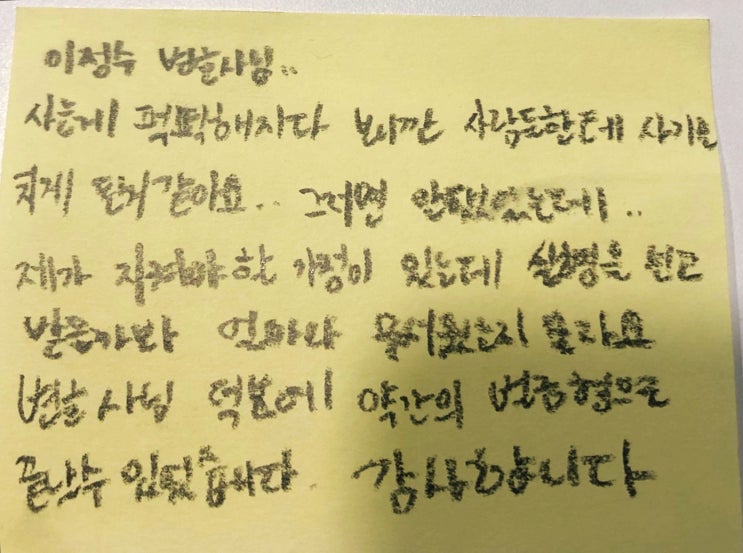 이정수 변호사님..
사는게 퍽퍽해지다 보니깐 사람들한테 사기를
치게 된거 같아요.. 그러면 안됐었는데..
제가 지켜야 한 가정이 있는데 실형을 선고
받을까봐 얼마나 무서웠는지 몰라요
변호사님 덕분에 약간의 벌금형으로
끝날수 있었습니다. 감사합니다